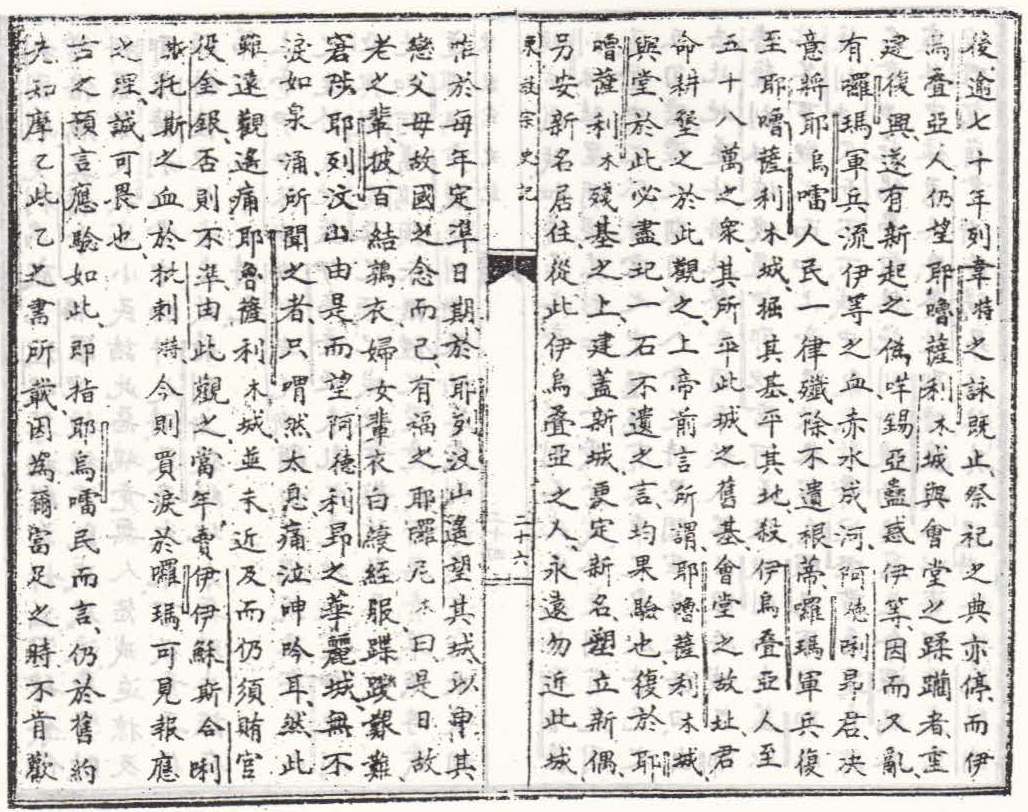 後逾七十年列韋特之詠既止祭祀之典亦停而伊
烏叠亞人仍望耶嚕薩利木城與會堂之蹂躪者重
建復興遂有新起之僞咩錫亞蠱惑伊等因而又亂
有囉瑪軍兵流伊等之血赤水成河阿德唎昂君决
意將耶烏嚅人民一律殲除不遺根蒂囉瑪軍兵復
至耶嚕薩利木城掘其基平其地殺伊烏叠亞人至
五十八萬之衆其所平此城之舊基會堂之故址君
命耕墾之於此觀之上帝前言所謂耶嚕薩利木城
與堂於此必盡圮一石不遺之言均果驗也復於耶
嚕薩利木殘基之上建蓋新城更定新名塑立新偶
另安新名居住從此伊烏叠亞之人永遠勿近此城
東教宗史記
二十六
惟於每年定準日期於耶列汶山遙望其城以申其
戀父母故國之念而已有福之耶囉尼木曰是日故
老之輩披百結鶉衣婦女輩衣白縗絰服蹀躞艱難
窘陟耶列汶山由是而望阿德利昂之華麗城無不
淚如泉涌所聞之者只喟然太息痛泣呻吟耳然此
雖遠觀遙痛耶魯薩利木城並未近及而仍須賄官
役金銀否則不準由此觀之當年賣伊伊穌斯合唎
斯托斯之血於批剌特今則買淚於囉瑪可見報應
之理誠可畏也
古之預言應驗如此即指耶烏嚅民而言仍於舊約
先知摩乙些乙之書所載因爲爾富足之時不肯歡